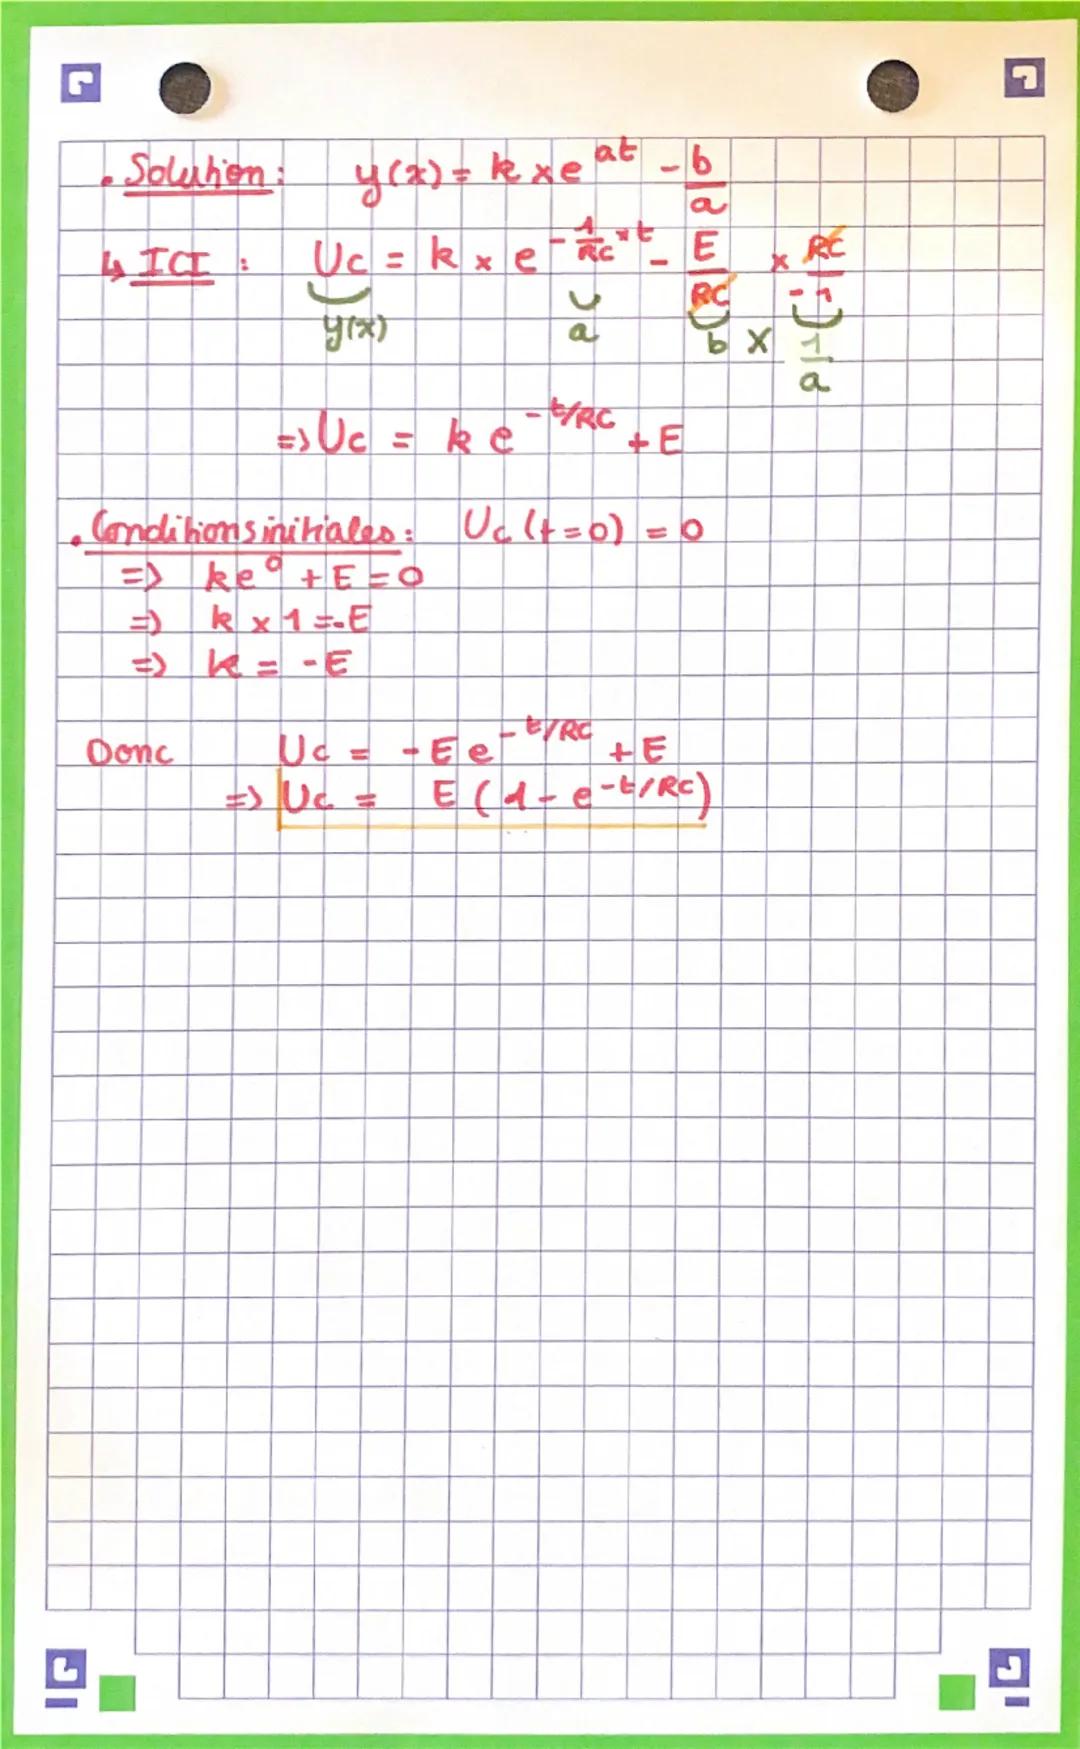 . Solution : y(x) = k x e^at - b/a
↳ ICI : Uc = k x e^-1/RC x t - E/RC x RC/-1
y(x) a b x 1/a
=> Uc = k e^-t/RC + E
. Conditions initiales : Uc (t=0) = 0
=> ke^0 + E = 0
=> k x 1 = -E
=> k = -E
Donc Uc = -E e^-t/RC + E
=> Uc = E (1 - e^-t/RC)